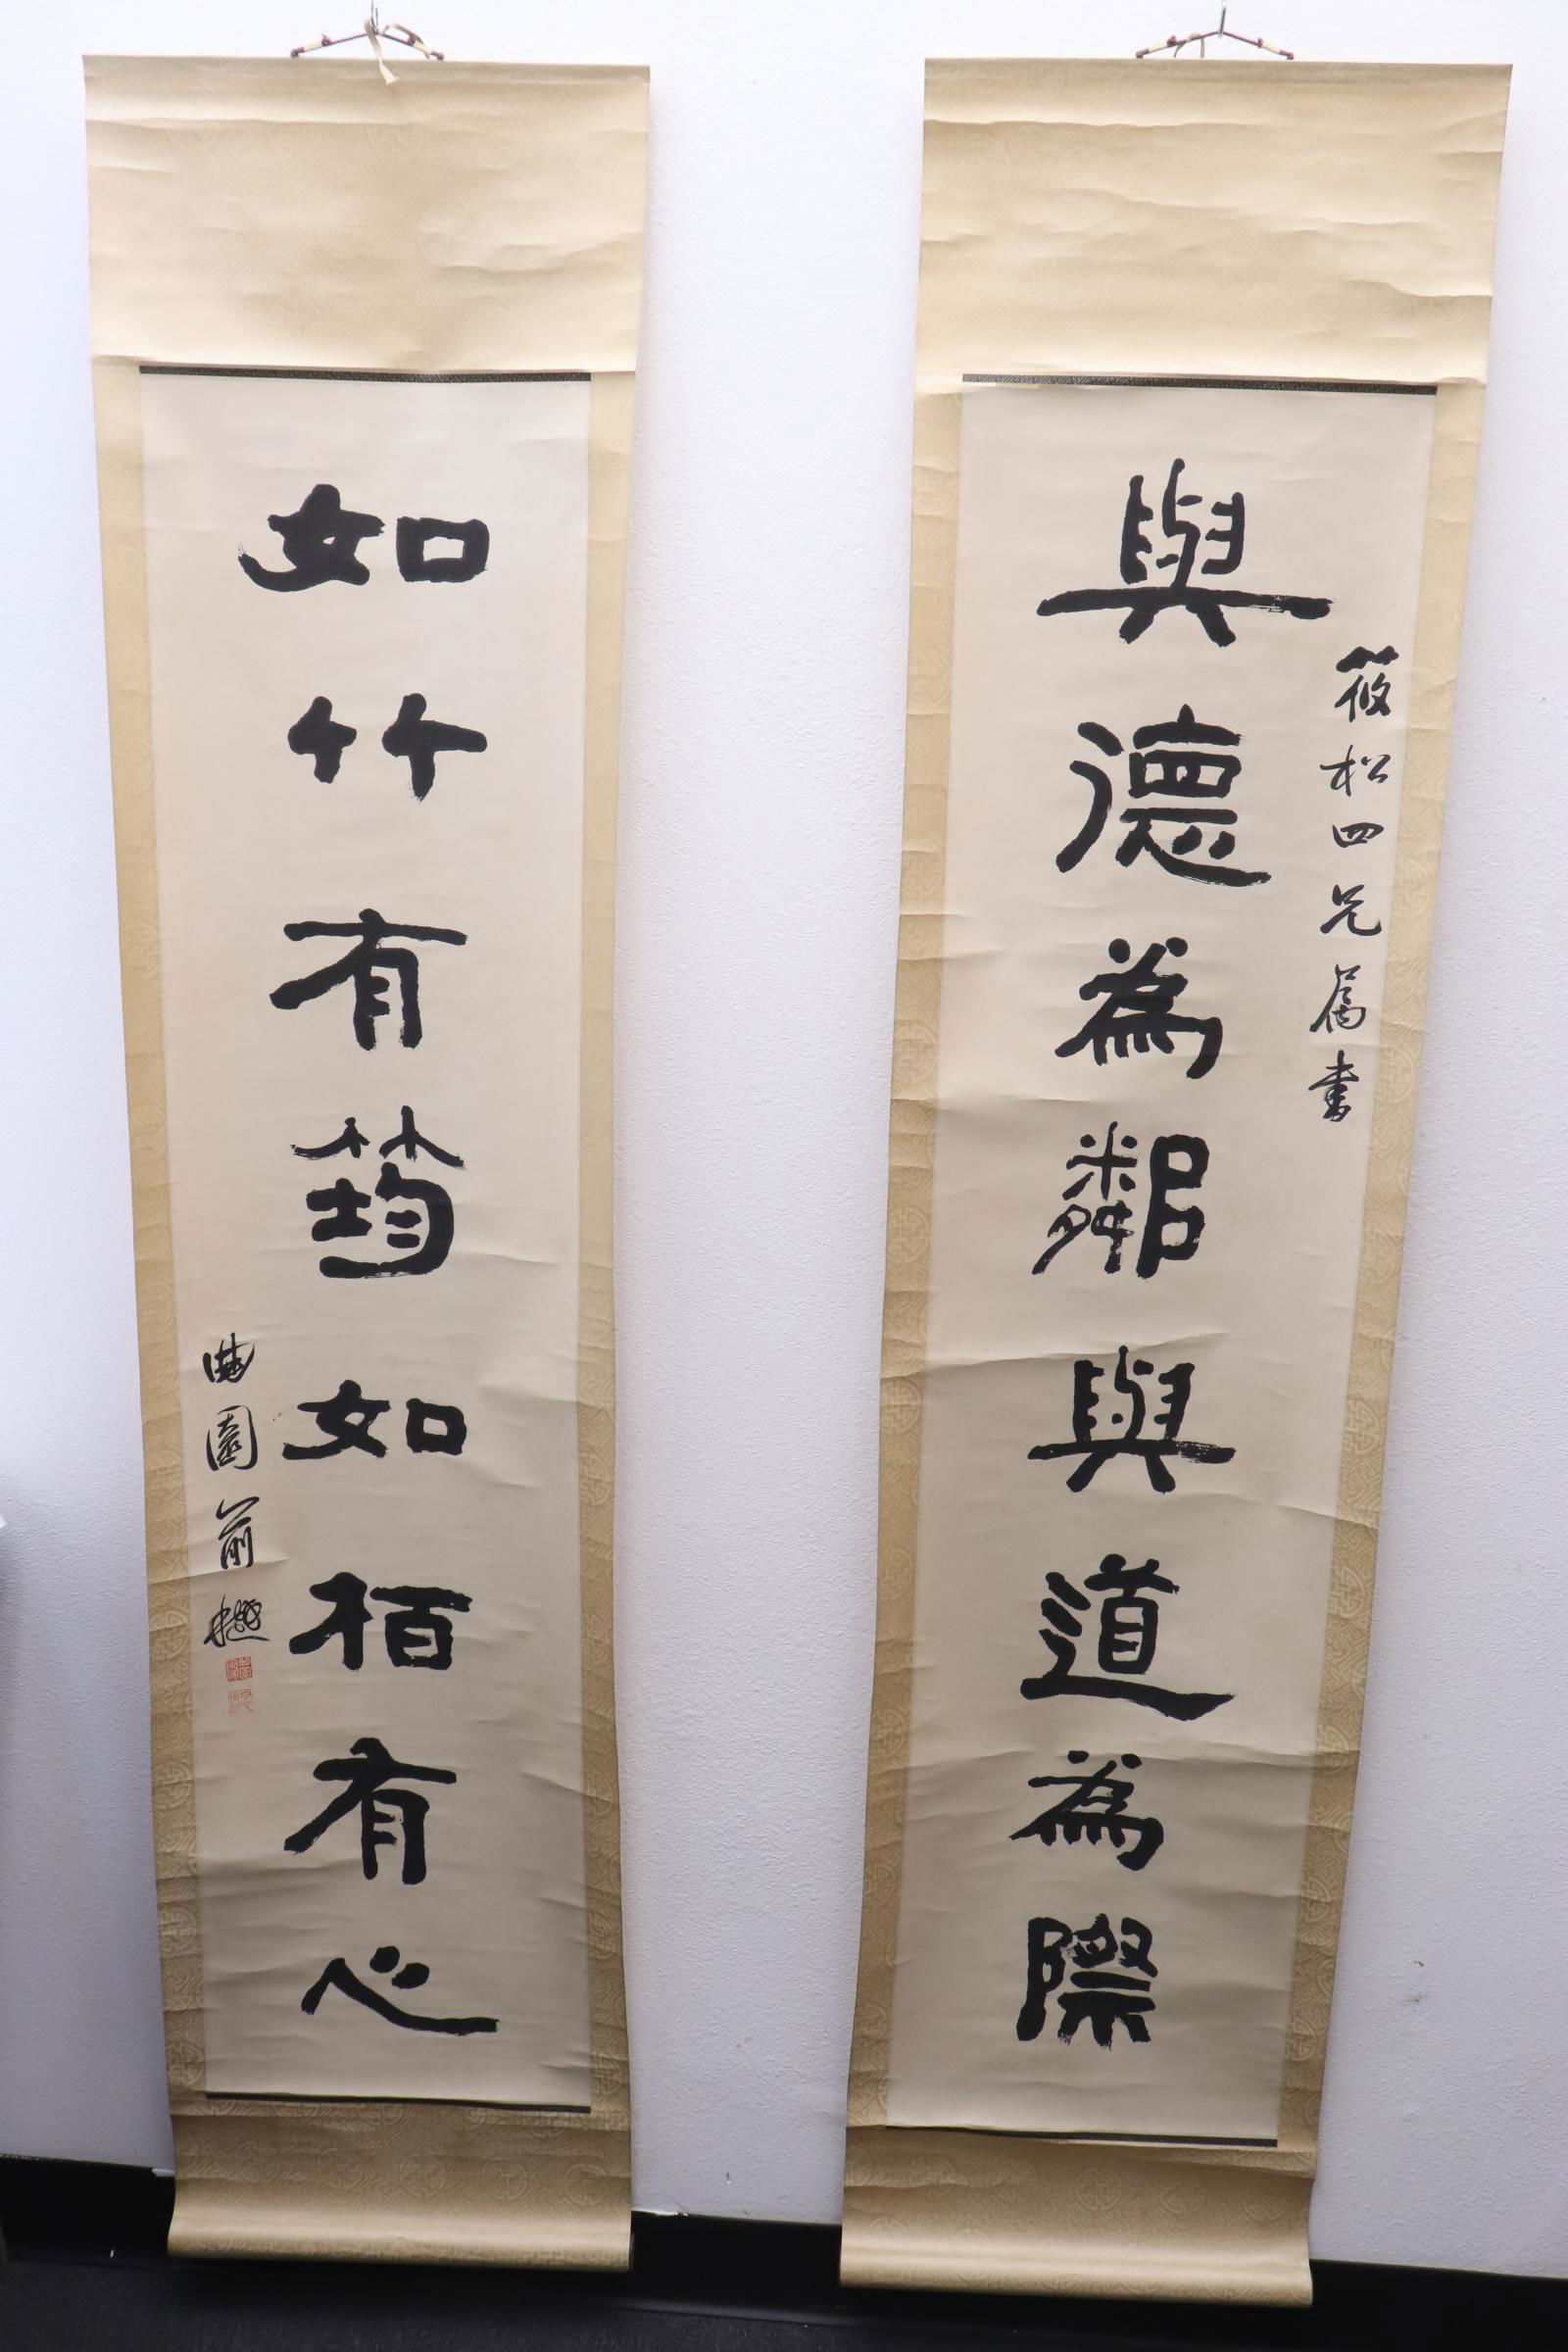 與德為鄰與道為際
筱松四兄属書
如竹有筠如栢有心
曲園俞樾